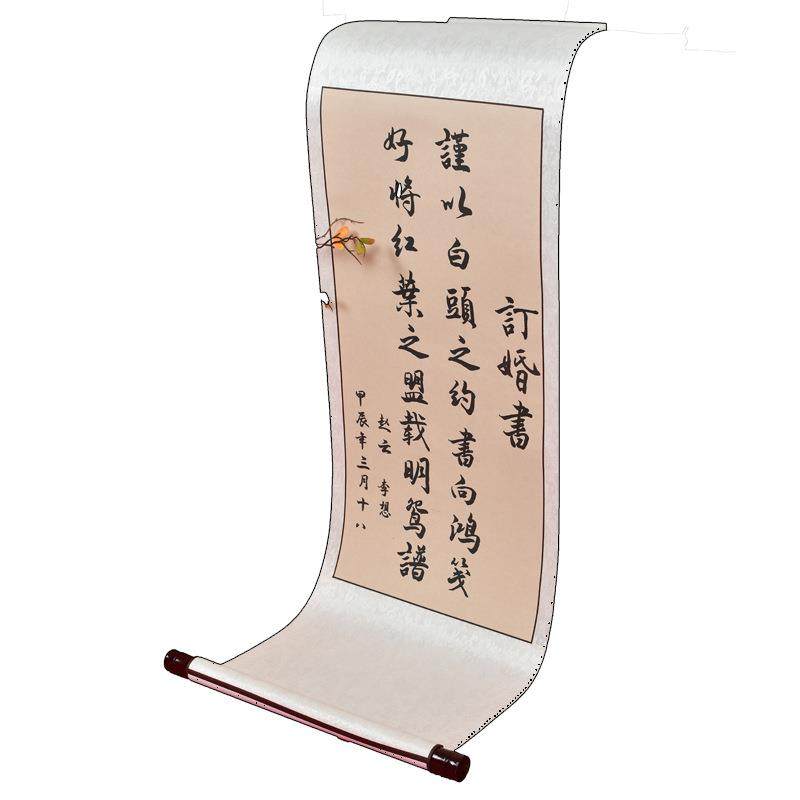 訂婚書
謹以白頭之約書向鴻笺
好將红葉之盟载明鸳譜
赵云 李想
甲辰年三月十八